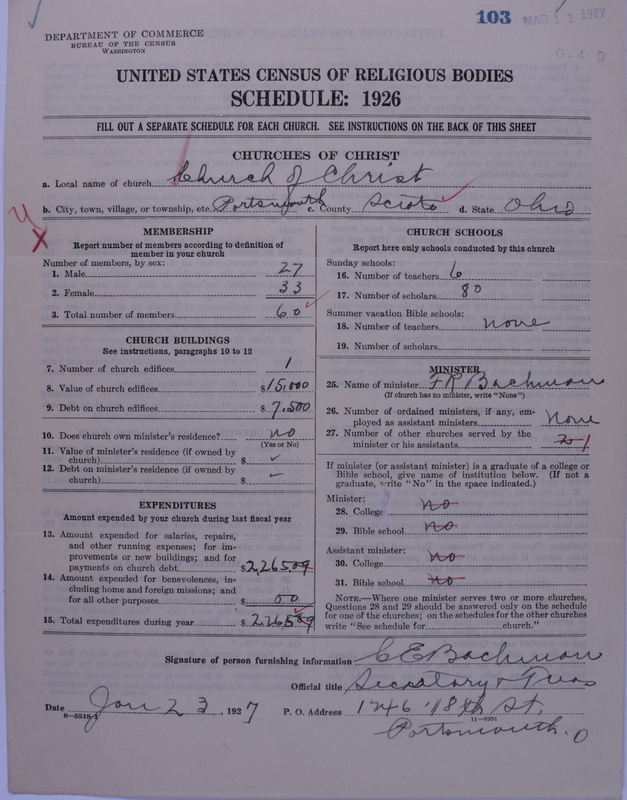 103 MAR 13 1927
DEPARTMENT OF COMMERCE
BUREAU OF THE CENSUS
WASHINGTON
0-4-9
UNITED STATES CENSUS OF RELIGIOUS BODIES
SCHEDULE: 1926
FILL OUT A SEPARATE SCHEDULE FOR EACH CHURCH. SEE INSTRUCTIONS ON THE BACK OF THIS SHEET
CHURCHES OF CHRIST
a. Local name of church Church of Christ
b. City, town, village, or township, etc. Portsmouth c. County Scioto d. State Ohio
MEMBERSHIP
Report number of members according to definition of
member in your church
Number of members, by sex:
1. Male 27
2. Female 33
3. Total number of members 60
CHURCH BUILDINGS
See instructions, paragraphs 10 to 12
7. Number of church edifices 1
8. Value of church edifices $15,000
9. Debt on church edifices $7,500
10. Does church own minister's residence? no
(Yes or No)
11. Value of minister's residence (if owned by
church) $
12. Debt on minister's residence (if owned by
church) $
EXPENDITURES
Amount expended by your church during last fiscal year
13. Amount expended for salaries, repairs,
and other running expenses; for im-
provements or new buildings; and for
payments on church debt $2,265.09
14. Amount expended for benevolences, in-
cluding home and foreign missions; and
for all other purposes $ 00
15. Total expenditures during year $2,265.09
CHURCH SCHOOLS
Report here only schools conducted by this church
Sunday schools:
16. Number of teachers 6
17. Number of scholars 80
Summer vacation Bible schools:
18. Number of teachers none
19. Number of scholars
MINISTER
25. Name of minister F R Bachman
(If church has no minister, write "None")
26. Number of ordained ministers, if any, em-
ployed as assistant ministers None
27. Number of other churches served by the
minister or his assistants 1
If minister (or assistant minister) is a graduate of a college or
Bible school, give name of institution below. (If not a
graduate, write "No" in the space indicated.)
Minister:
28. College no
29. Bible school no
Assistant minister:
30. College no
31. Bible school no
NOTE.—Where one minister serves two or more churches,
Questions 28 and 29 should be answered only on the schedule
for one of the churches; on the schedules for the other churches
write "See schedule for church."
Signature of person furnishing information C E Bachman
Official title Secretary & Treas
Date Jan 23, 1927 P. O. Address 1246 18th St,
8-5518 11-9204
Portsmouth. O